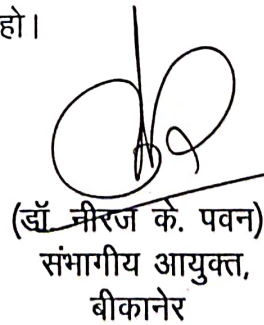 हो।
(डॉ. नीरज के. पवन)
संभागीय आयुक्त,
बीकानेर